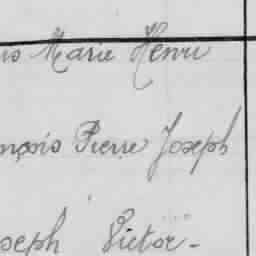 is Marie Henri
nçois Pierre Joseph
oseph Victor -